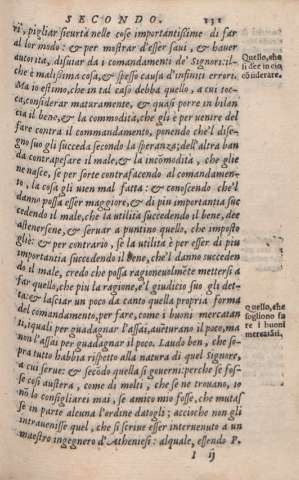 SECONDO. 131
ri, pigliar sicurtà nelle cose importantissime di far
al lor modo: & per mostrar d'esser saui, & hauer
autorita, disuiar da i comandamenti de' Signori: il-
che è malissima cosa, & spesso causa d'infiniti errori.
Quello, che
si dee in ciò
cōsiderare.
ta io estimo, che in tal caso debba quello, a cui toc-
ca, considerar maturamente, & quasi porre in bilan
cia il bene, & la commodità, che gli è per uenire del
fare contra il commandamento, ponendo che'l dise-
gno suo gli succeda secondo la speranza; dell'altra ban
da contrapesare il male, & la incōmodità, che glie
ne nasce, se per sorte contrafacendo al comandamen-
to, la cosa gli uien mal fatta: & conoscendo che'l
danno possa esser maggiore, & di piu importantia suc
cedendo il male, che la utilità succedendo il bene, dee
astenersene, & seruar a puntino quello, che imposto
gliè: & per contrario, se la utilità è per esser di piu
importantia succedendo il bene, che'l danno succeden
do il male, credo che possa ragioneuolmēte mettersi a
far quello, che piu la ragione, e'l giudicio suo gli det-
ta: & lasciar un poco da canto quella propria forma
del comandamento, per fare, come i buoni mercatan
ti, iquali per guadagnar l'assai, auēturano il poco, ma
non l'assai per guadagnar il poco. Laudo ben, che so-
Quello, che
sogliono fa
re i buoni
mercatāti.
pra tutto habbia rispetto alla natura di quel Signore,
a cui serue: & secōdo quella si gouerni: perche se fos-
se così austera, come di molti, che se ne trouano, io
nō lo consigliarei mai, se amico mio fosse, che mutas
se in parte alcuna l'ordine datogli; accioche non gli
intrauenisse quel, che si scriue esser interuenuto a un
maestro ingegnero d'Atheniesi: alquale, essendo P.
I ij